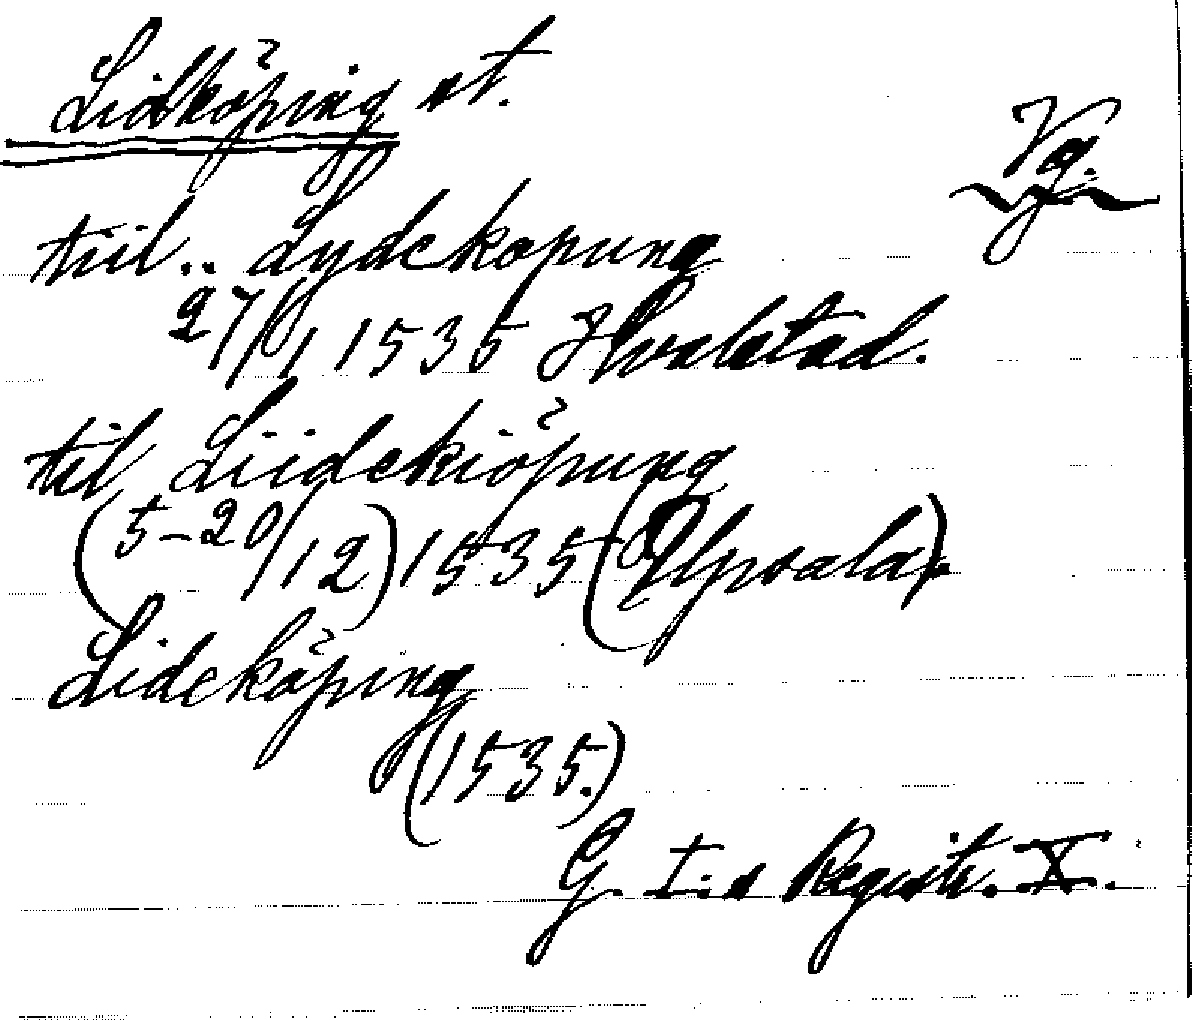 Lidköping st.
Vg.
tiil.. Lydekøpung
27/1 1535 Hvalstad.
til Liidekiöpung
(5-20/12) 1535 (Upsala).
Lideköping
(1535.)
G. I:s Registr. X.